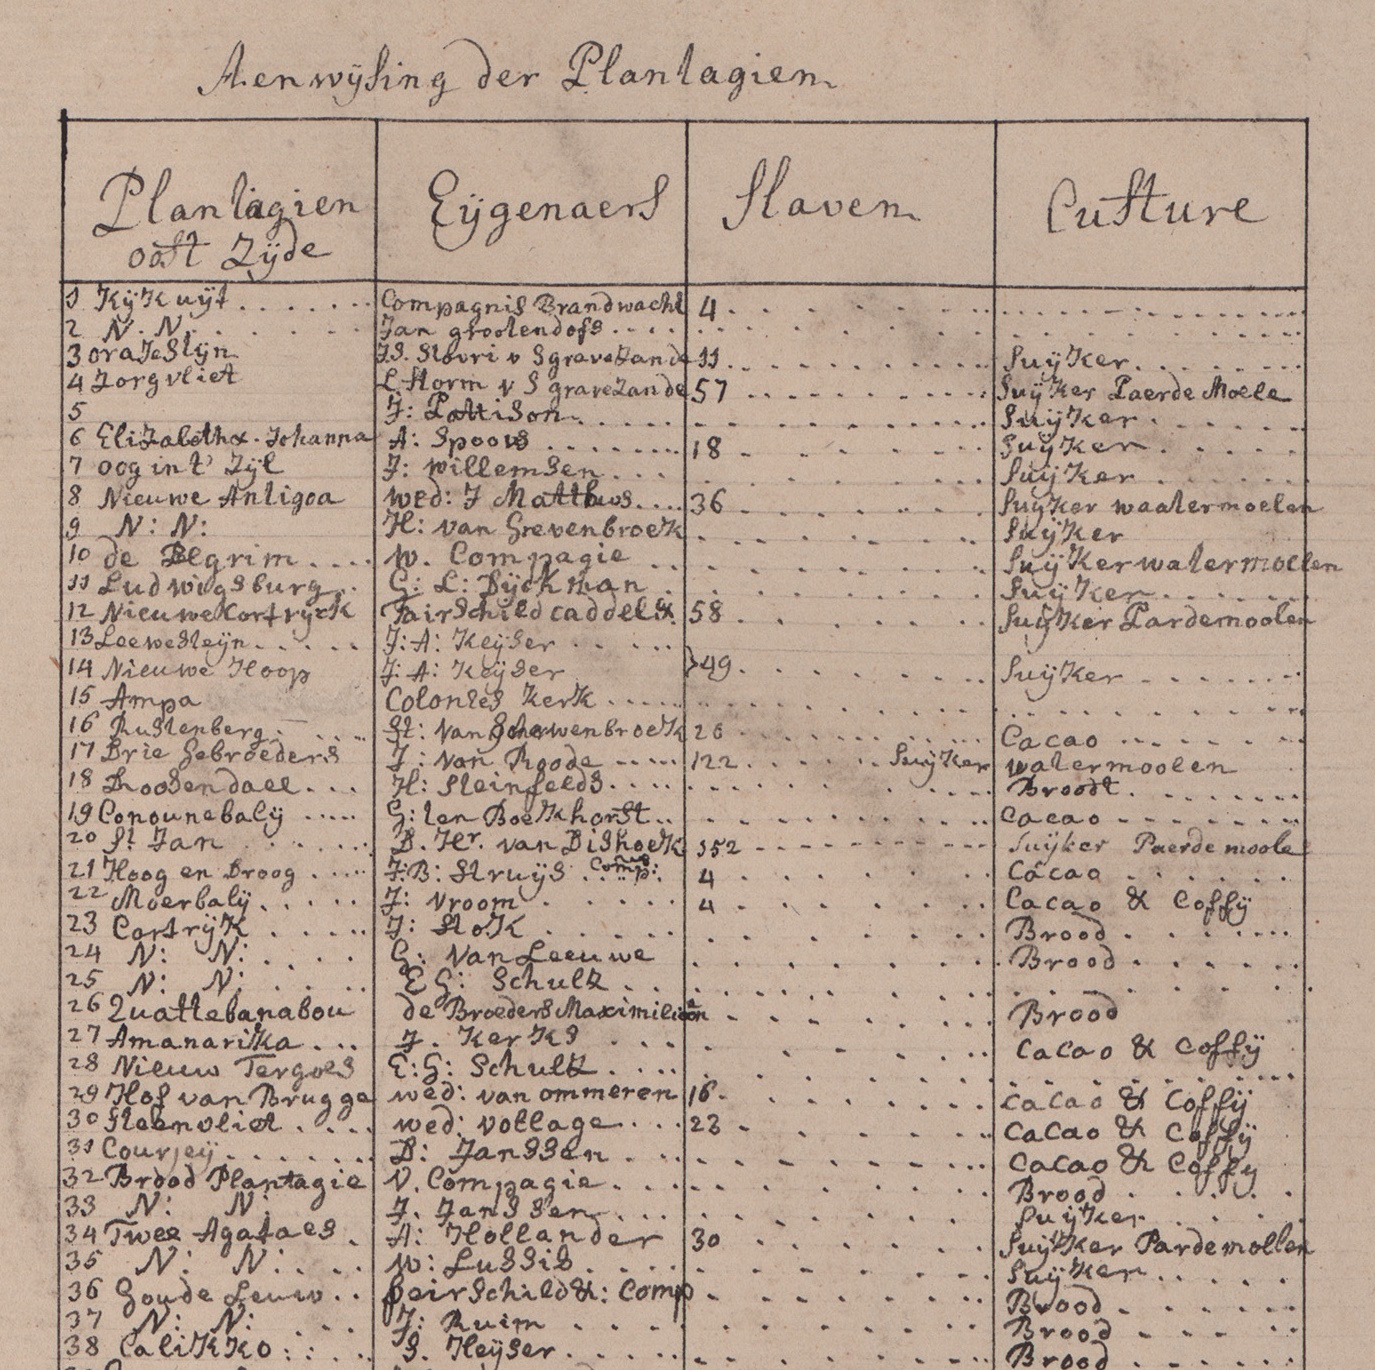 Aenwÿsing der Plantagien
Plantagien oost Zÿde Eÿgenaers Slaven Culture
1 KÿKuÿt Compagnis Brandwacht 4
2 N. N. Jan grootendofs
3 oraJeStÿn J.S. Storri v SgraveZande 11 SuÿKer
4 Zorgvliet L Storm v S graveZande 57 SuÿKer Paerde Moele
5 J: Pattison SuÿKer
6 EliZabetha. Johanna A: Spoors 18 SuÿKer
7 oog int Zÿl J: willemsen SuÿKer
8 Nieuwe Antigoa wed: J Mattheus 36 SuÿKer waatermoelen
9 N: N: H: van GrevenbroeK SuÿKer
10 de Pelgrim W. Compagie SuÿKer watermoelen
11 Ludwigsburg G: L: DÿcKman SuÿKer
12 Nieuwe Cortrÿck Fairschild caddel &. 58 SuÿKer Pardemoolen
13 Leewesteÿn J: A: Keÿser
14 Nieuwe Hoop J: A: Keÿser }49 SuÿKer
15 Ampa Colonies KerK
16 Rustenberg St: Van SchowenbroeK 26 Cacao
17 Drie Gebroeders J: van Roode 122 SuÿKer watermoolen
18 Roosendael H: Steinfelds Broodt
19 Conounebalÿ G: ten BoeKhorst Cacao
20 St. Jan D. Hr. van DishoeK 152 Suÿker Paerde moole
21 Hoog en Droog J: B: Struÿs Comp: 4 Cacao
22 Moerbalÿ J: vroom 4 Cacao & Coffÿ
23 CortrÿK J: StoK Brood
24 N: N: G: Van Leeuwe Brood
25 N: N: E G: Schultz
26 Quattebanabou de Broeders Maximiliaan Brood
27 AmanariKa J. KerKs Cacao & Coffÿ
28 Nieuw Tergoes E: G: Schultz
29 Hof van Brugge wed: van ommeren 16 Cacao & Coffÿ
30 Steenvliet wed: vollage 23 Cacao & Coffÿ
31 Courjeÿ D: Janssen Cacao & Coffy
32 Brood Plantagie V. Compagie Brood
33 N: N: J. Janssen SuÿKer
34 Twee Agataes A: Hollander 30 SuÿKer Pardemollen
35 N: N: W: Lussis SuÿKer
36 Goude Leuw feirschild &: Comp Brood
37 N: N: J: Ruim Brood
38 CaliKKo S. Heÿser Brood